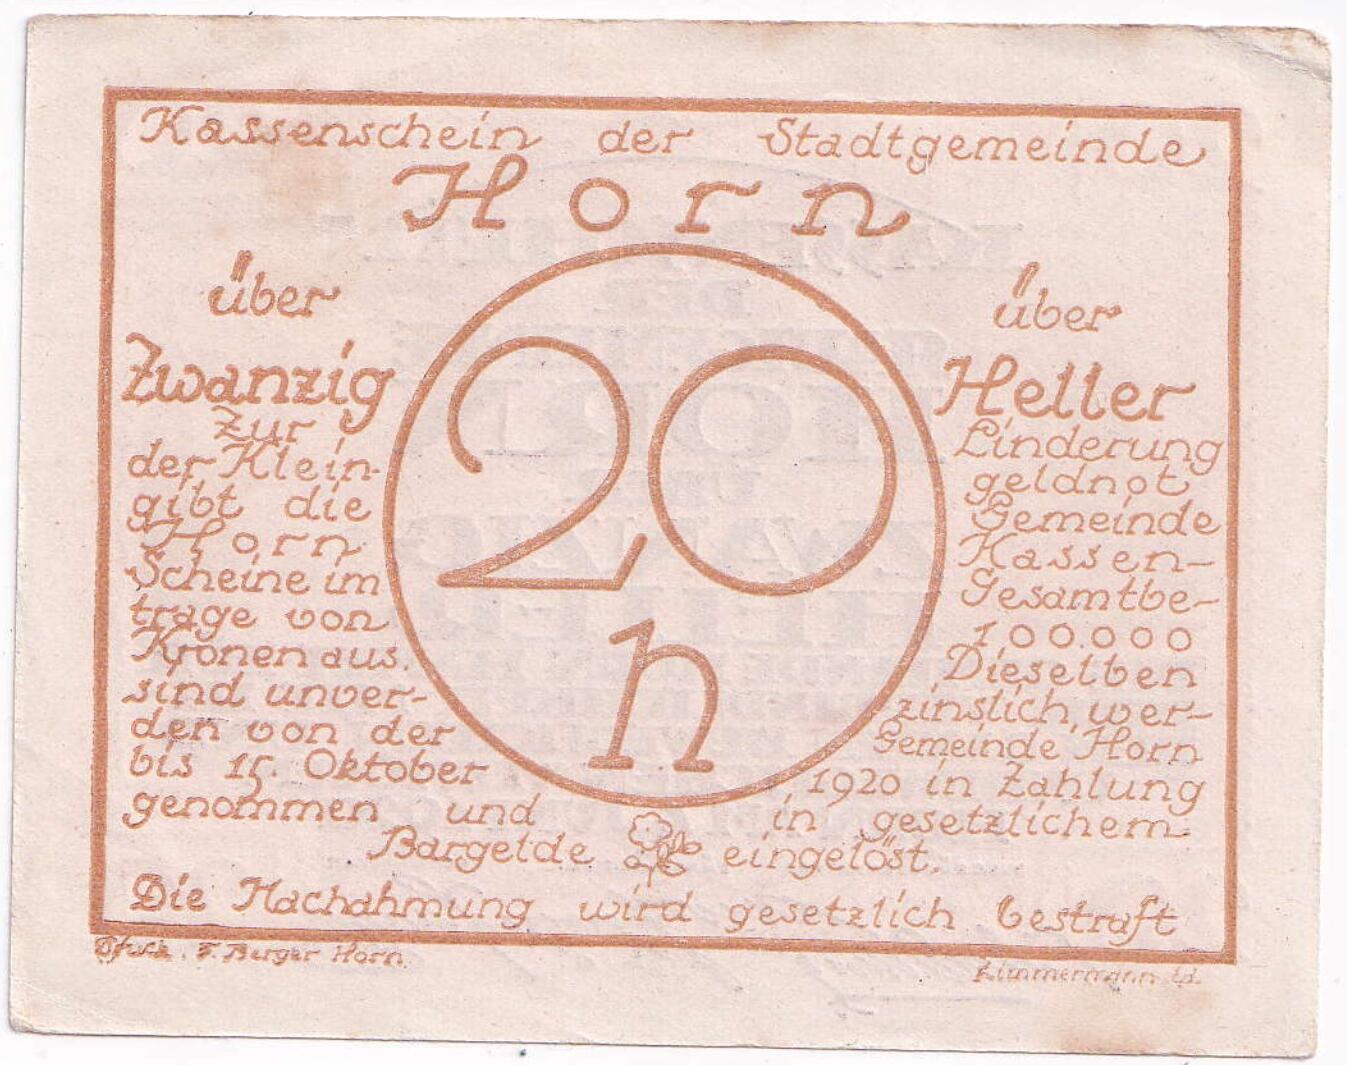 Kassenschein der Stadtgemeinde
Horn
über über
Zwanzig Heller
Zur Linderung
der Klein- geldnot
gibt die Gemeinde
Horn Kassen-
Scheine im Gesamtbe-
trage von 100.000
Kronen aus. Dieselben
sind unver- zinslich, wer-
den von der Gemeinde Horn
bis 15. Oktober 1920 in Zahlung
genommen und in gesetzlichem
Bargelde eingelöst.
20
h
Die Nachahmung wird gesetzlich bestraft
Druck. F. Berger Horn.
Zimmermann